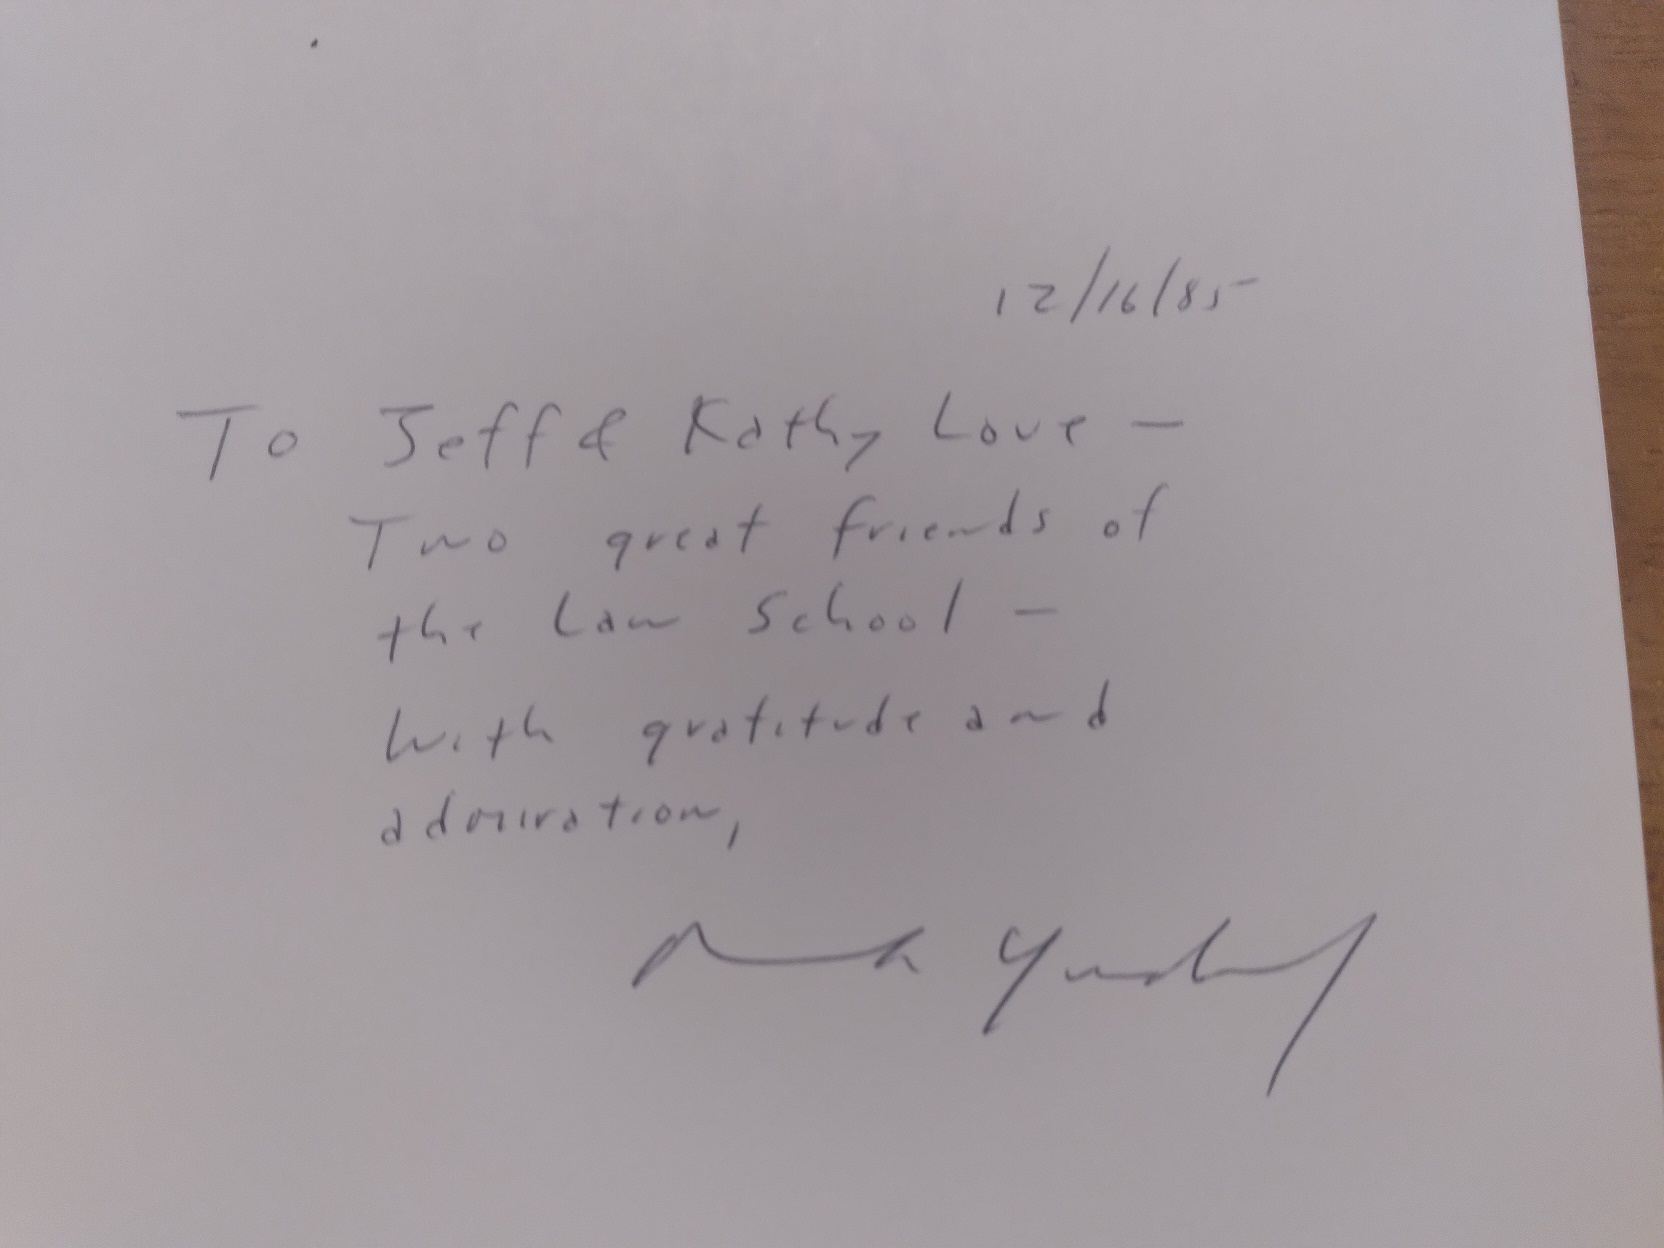 12/16/85
To Jeff & Kathy Love —
Two great friends of
the Law School —
With gratitude and
admiration,
Mark Yudof